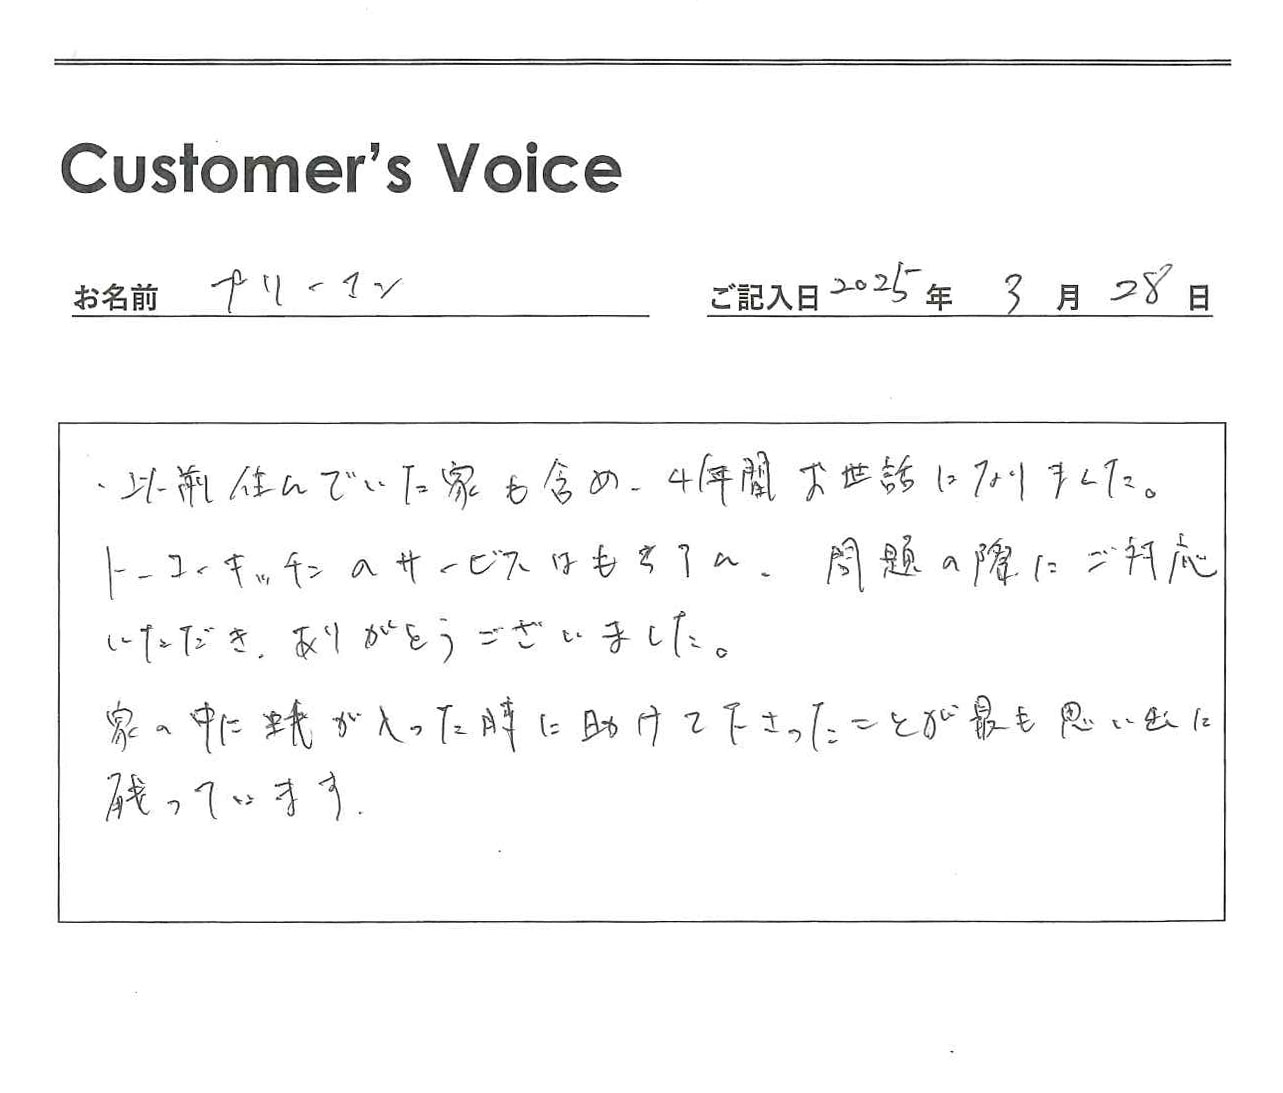 Customer's Voice
お名前 ご記入日 2025 年 3 月 28 日
・以前住んでいた家も含め、4年間お世話になりました。
トーコーキッチンのサービスはもちろん、問題の際にご対応
いただき、ありがとうございました。
家の中に蛾が入った時に助けて下さったことが最も思い出に
残っています。